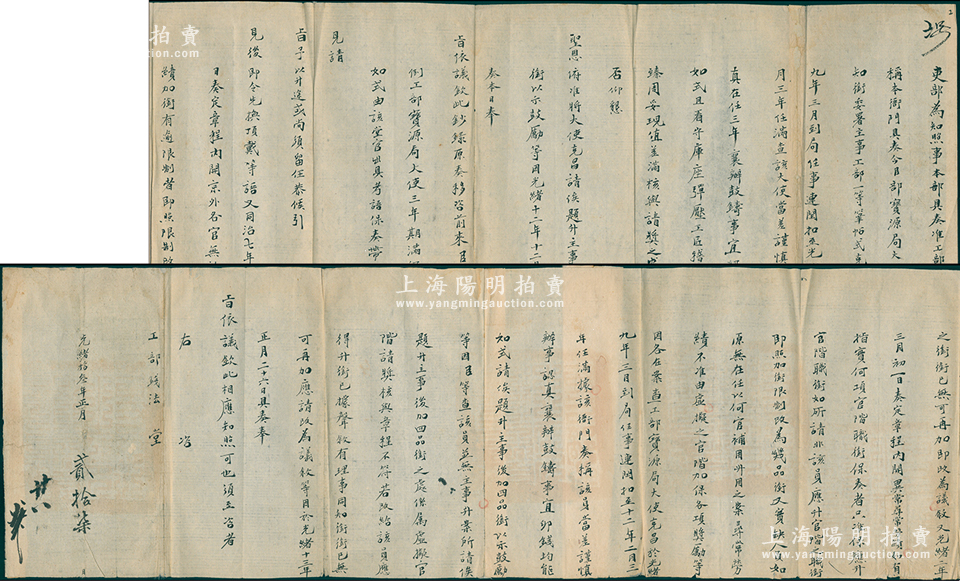 吏部為知照事本部具奏准工部
稱本衙門具奏今自部寶源局大
知銜委署主事工部一等筆帖式克
九年三月到局任事連閏扣至光
月三年任滿查該大使當差謹慎
真在任三年襄辦鼓鑄事宜
如式且看守庫座彈壓工匠
臻周妥現值差滿核與請獎之
否仰懇
聖恩俯准將大使克昌請俟題升主事
銜以示鼓勵等因光緒十二年十二
奏本日奉
旨依議欽此鈔錄原奏移咨前來
例工部寶源局大使三年期滿
如式由該堂官出具考語保奏帶
見請
旨予以升遷或尚須留任恭候引
見後即令先換頂戴等語又同治七年
日奏定章程內開京外各官無
續加銜有逾限制者即照限制
之銜銜已無可再加即改為議敘又光緒二年
三月初一日奏定章程內開異常尋常勞績有
指寶何項官階職銜保奏者只准依應升
官階職銜如所請非該員應升官階職銜
即照加銜限制改為幾品銜又實缺人員如
原無在任以何官補用升用之案尋常勞
績不准由虛擬之官階加保各項獎勵等
因各在案查工部寶源局大使克昌於光緒
九年三月到局任事連閏扣至十二年二月三
年任滿據該衙門奏稱該員當差謹慎
辦事認真襄辦鼓鑄事宜卯錢均能
如式請俟題升主事後加四品銜以示鼓勵
等因臣等查該員並無主事升案所請俟
題升主事後加四品銜之處係屬虛擬官
階請獎核與章程不符若改給該員應
得升銜已據聲敘有理事同知銜銜已無
可再加應請改為議敘等因於光緒十三年
正月二十六日具奏奉
旨依議欽此相應知照可也須至咨者
右 咨
工部錢法 堂
光緒拾叁年正月 貳拾柒 日
上海陽明拍賣
www.yangmingauction.com
上海陽明拍賣
www.yangmingauction.com